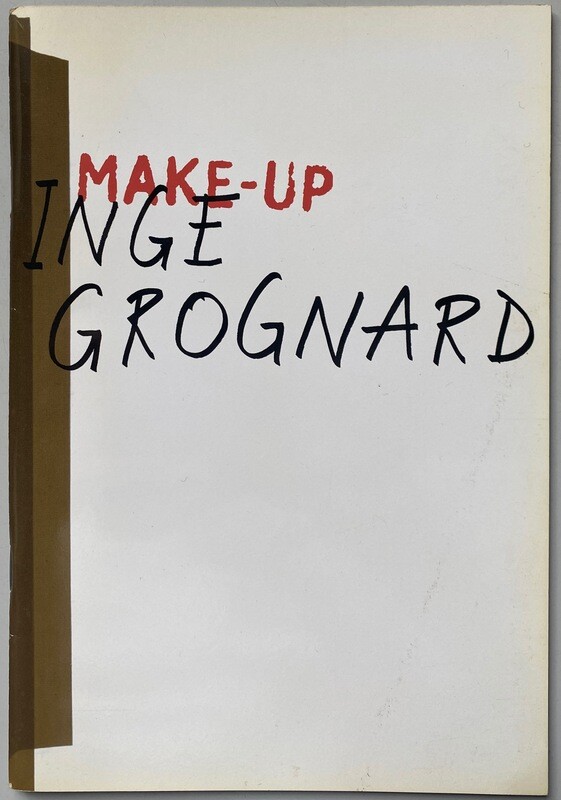 MAKE-UP
INGE
GROGNARD